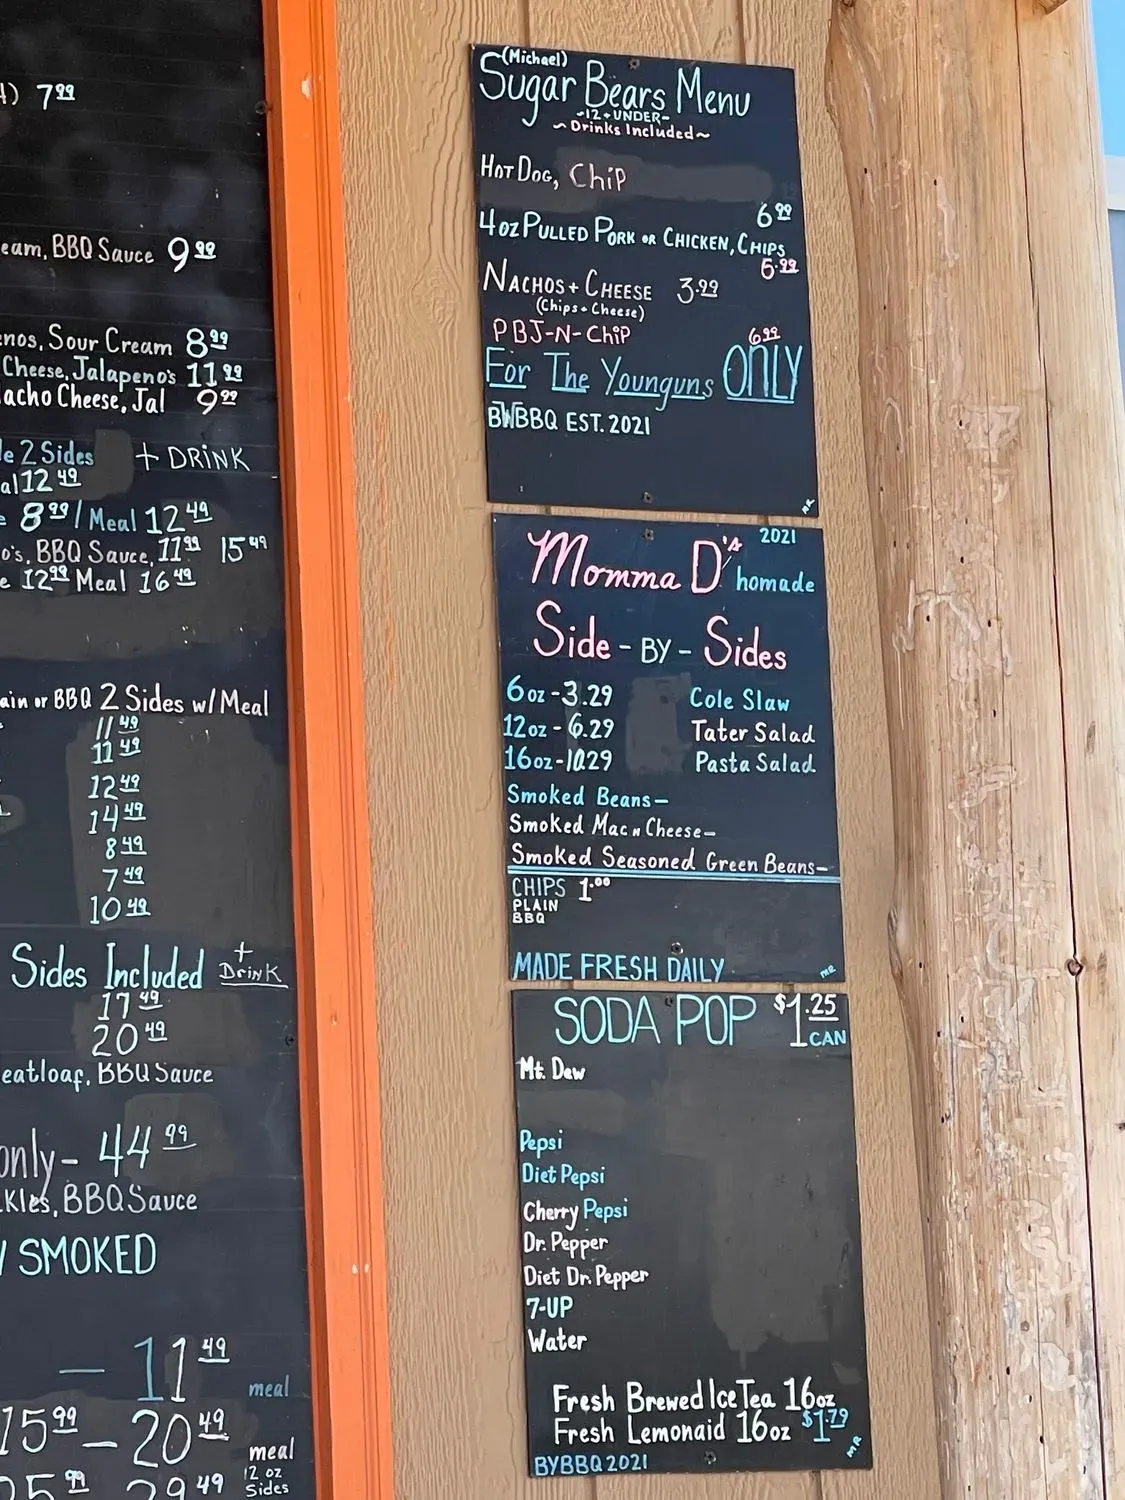 7.99
eam, BBQ Sauce 9.99
enos, Sour Cream 8.99
Cheese, Jalapeno's 11.99
Nacho Cheese, Jal 9.99
2 Sides + DRINK
12.49
8.99 / Meal 12.49
o's, BBQ Sauce, 11.99 15.49
12.99 Meal 16.49
ain or BBQ 2 Sides w/ Meal
11.49
11.49
12.49
14.49
8.49
7.49
10.49
Sides Included + Drink
17.49
20.49
eatloaf, BBQ Sauce
only - 44.99
ckles, BBQ Sauce
SMOKED
— 11.49 meal
15.99 — 20.49 meal
12 oz
Sides
29.49
(Michael)
Sugar Bears Menu
-12 + UNDER-
~Drinks Included~
HOT DOG, ChiP
6.99
4oz PULLED PORK OR CHICKEN, CHIPS
6.99
NACHOS + CHEESE 3.99
(Chips + Cheese)
PBJ-N-ChiP 6.99
For The Younguns ONLY
BBQ EST. 2021
MR
2021
Momma D's homade
Side - BY - Sides
6oz - 3.29 Cole Slaw
12oz - 6.29 Tater Salad
16oz - 10.29 Pasta Salad
Smoked Beans—
Smoked Mac n Cheese—
Smoked Seasoned Green Beans—
CHIPS 1.00
PLAIN
BBQ
MADE FRESH DAILY
MR
SODA POP $1.25
CAN
Mt. Dew
Pepsi
Diet Pepsi
Cherry Pepsi
Dr. Pepper
Diet Dr. Pepper
7-UP
Water
Fresh Brewed Ice Tea 16oz
Fresh Lemonaid 16oz $1.79
MR
BYBBQ 2021